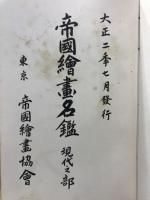 大正二年七月發行
帝國繪畫名鑑 現代之部
東京 帝國繪畫協會